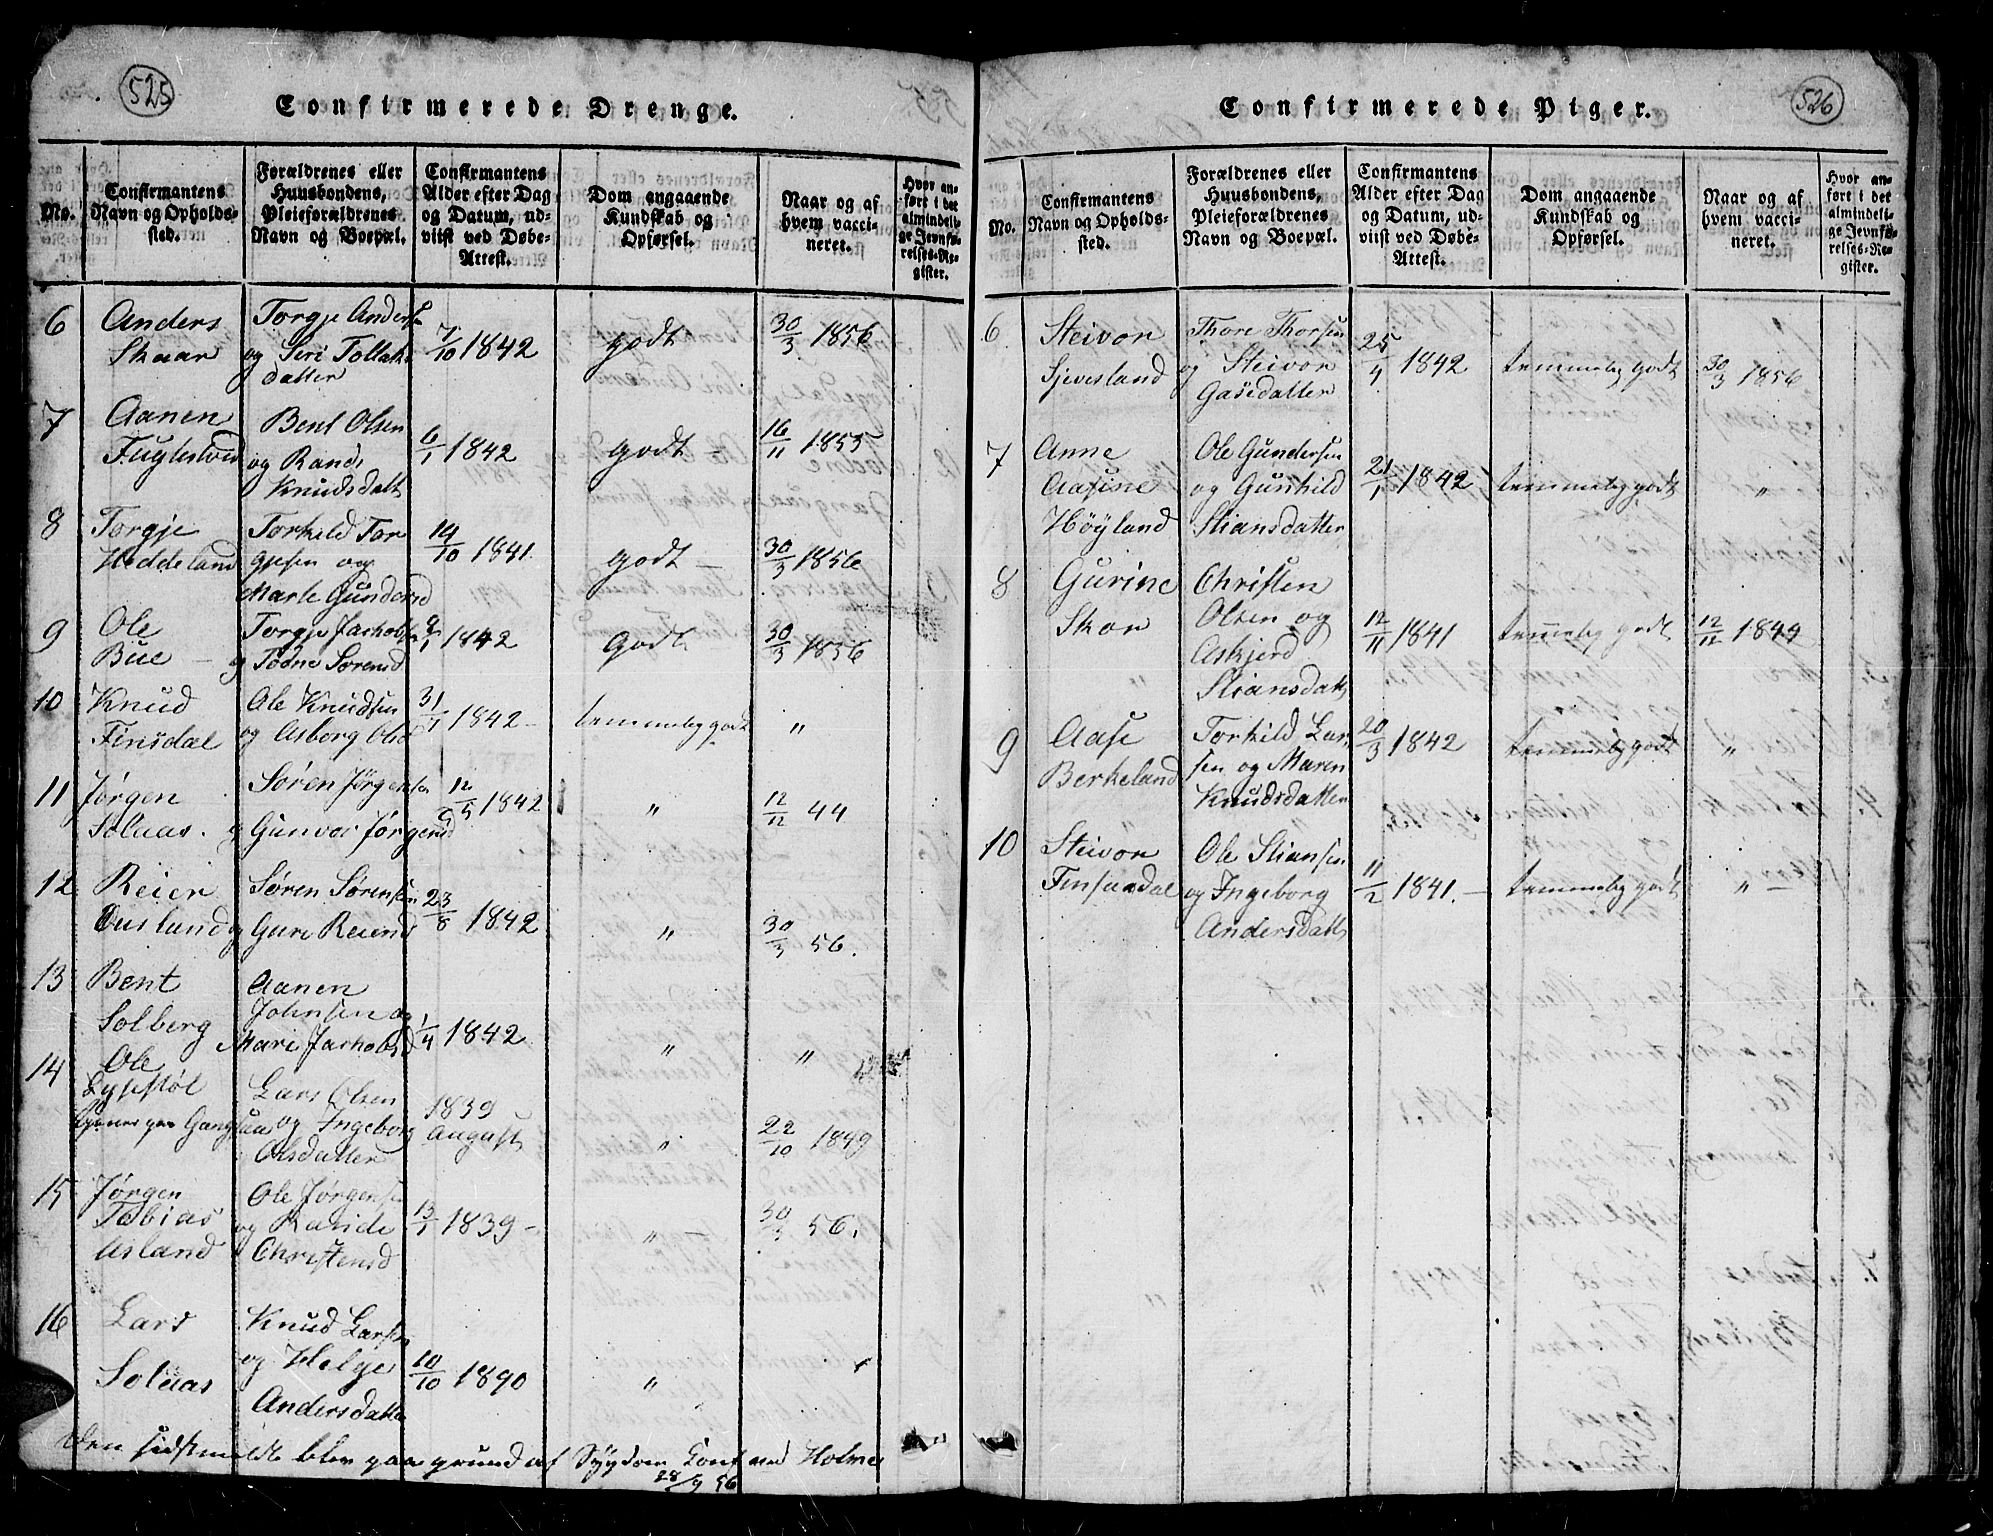 525
Confirmerede Drenge.
No.
Confirmantens
Navn og Opholds-
sted.
Forældrenes eller
Huusbondens,
Pleieforældrenes
Navn og Boepæl.
Confirmantens
Alder efter Dag
og Datum, ud-
viist ved Døbe-
Attest.
Dom angaaende
Kundskab og
Opførsel.
Naar og af
hvem vacci-
neret.
Hvor an-
ført i det
almindeli-
ge Jevnfø-
relses-Re-
gister.
6 Anders
Skaar
Torgje Anders
og Siri Tollaks
datter
7/10 1842
godt
30/3 1856
7 Aanen
Fuglestved
Bent Olsen
og Randi
Knudsdatt
6/1 1842
godt -
16/11 1855
8 Torgje
Heddeland
Torkild Tor
gjesen og
Marte Gundersd
14/10 1841
godt -
30/3 1856
9 Ole
Bue -
Torgje Jackobsen
og Todne Sorensd
1842
godt
30/3 1856
10 Knud
Finsdal
Ole Knudsen
og Asborg Olsd
31/1 1842 -
temmelig godt
"
11 Jørgen
Solaas.
Søren Jørgensen
og Gunvor Jørgensd
12/5 1842
"
12/12 44
12 Reier
Ousland
Søren Sørensen
og Guri Reiersd
23/8 1842
"
30/3 56.
13 Bent
Solberg
Aanen
Johnsen og
Mari Jackobsd
1/4 1842
"
"
14 Ole
Lysestøl
tjener paa Gangsaa
Lars Olsen
og Ingeborg
Olsdatter
1839
August
"
22/10 1849
15 Jørgen
Tobias
Asland
Ole Jørgensen
og Rande
Christensd
13/1 1839 -
"
30/3 56.
16 Lars
Solaas
Knud Larsen
og Helge
Andersdatter
10/10 1890
"
Den sidstmeldte blev paa grund af Sygdom Conf ved Holme
28/9 56
526
Confirmerede Piger.
No.
Confirmantens
Navn og Opholds-
sted.
Forældrenes eller
Huusbondens,
Pleieforældrenes
Navn og Boepæl.
Confirmantens
Alder efter Dag
og Datum, ud-
viist ved Døbe-
Attest.
Dom angaaende
Kundskab og
Opførsel.
Naar og af
hvem vacci-
neret.
Hvor an-
ført i det
almindeli-
ge Jevnfø-
relses-Re-
gister.
6. Steivor
Sjevesland
Thore Thorsen
og Steivor
Gasedatter
25/4 1842
temmelig godt
30/3 1856
7 Anne
Aasine
Høyland
Ole Gundersen
og Gunhild
Stiansdatter
21/1 1842
temmelig godt
"
8 Gurine
Skor
"
Christen
Olsen og
Askjerd
Stiansdatt
12/11 1841
temmelig godt
12/12 1844
9 Aase
Berkeland
Torkild Lar
sen og Maren
Knudsdatter
20/3 1842
temmelig godt
"
10 Steivor
Finsaadal
Ole Stiansen
og Ingeborg
Andersdatt
11/2 1841. -
temmelig godt
"